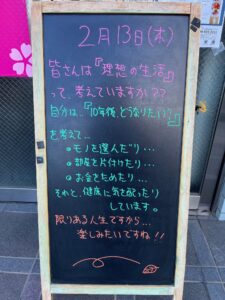 2月13日(木)
皆さんは『理想の生活』
って考えていますか??
自分は、『10年後、どうなりたい??』
を考えて…
・モノを選んだり…
・部屋を片付けたり…
・お金をためたり…
それと、健康に気を配ったり
しています。
限りある人生ですから…
楽しみたいですね!!